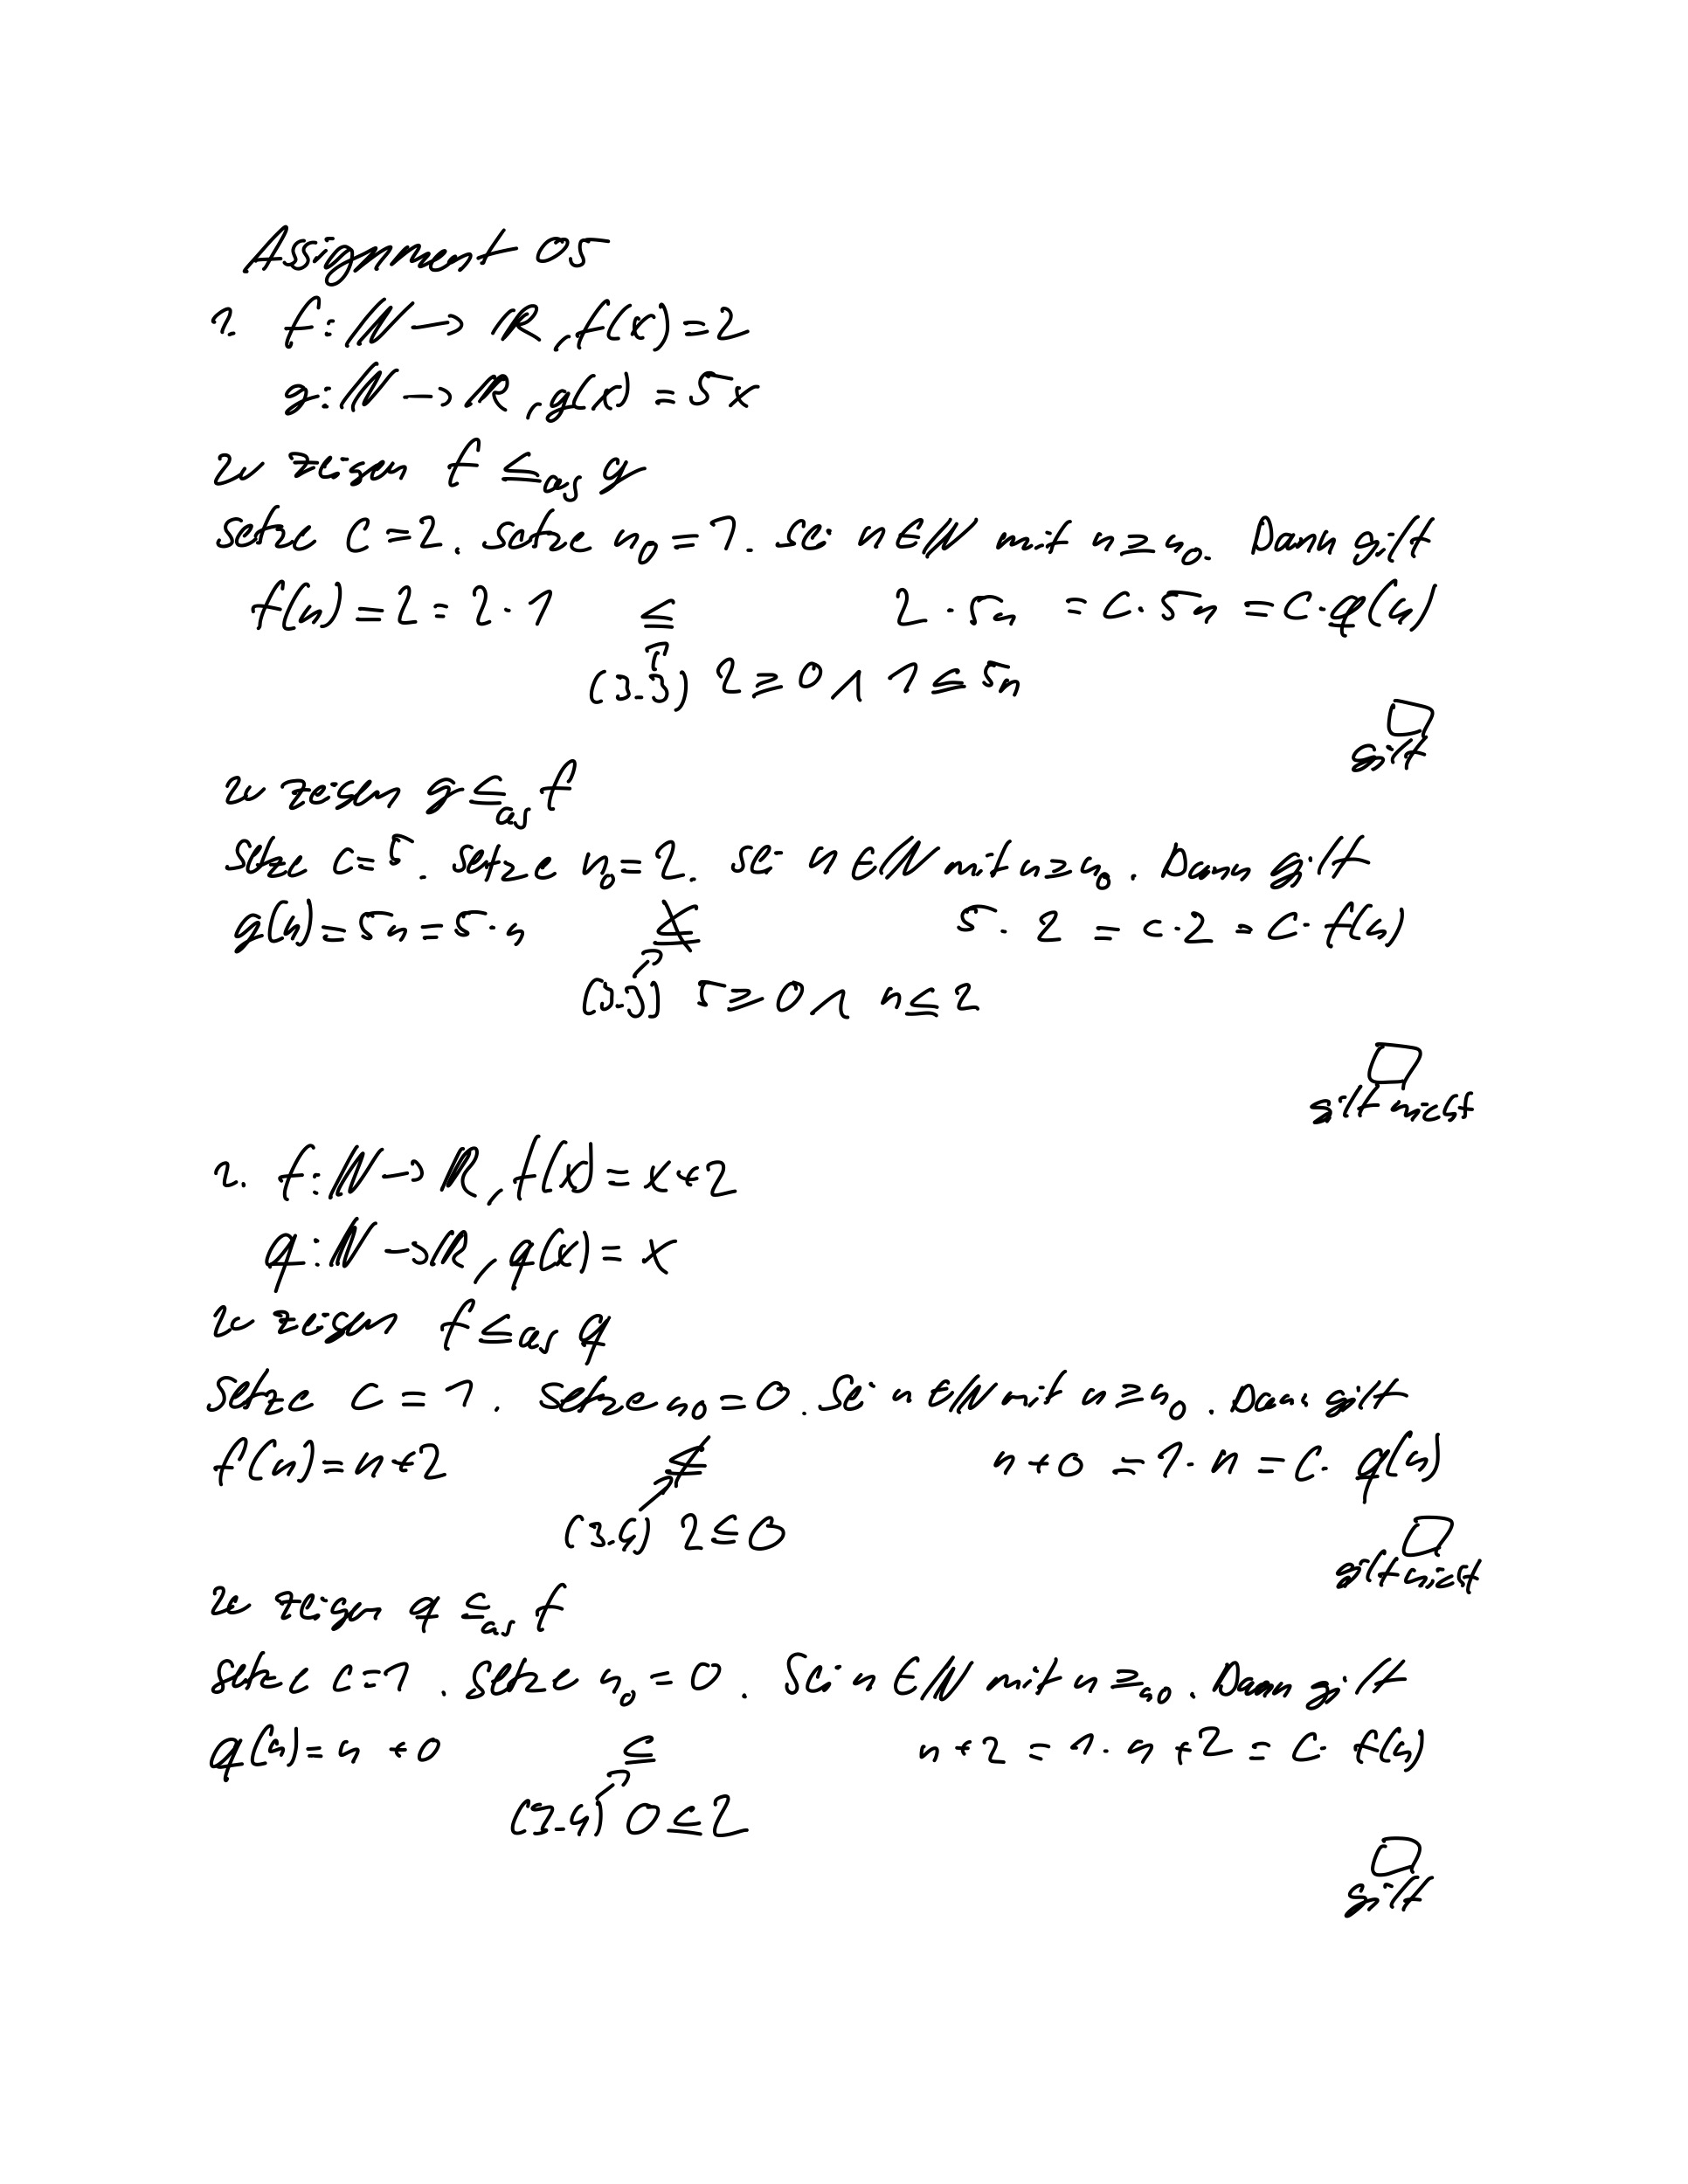 Assignment 05
1. f: ℕ → ℝ, f(x) = 2
g: ℕ → ℝ, g(x) = 5x
zu zeigen f ≤as g
setze c = 2. setze n₀ = 1. sei n ∈ ℕ mit n ≥ n₀. Dann gilt
f(n) = 2 = 2 · 1 ≤ 2 · 5n = c · 5n = c · g(n)
↑
(3.3) 2 ≥ 0 ∧ 1 ≤ 5n
□
gilt
zu zeigen g ≤as f
setze c = 5. setze n₀ = 2. sei n ∈ ℕ mit n ≥ n₀. Dann gilt
g(n) = 5n = 5 · n ≰ 5 · 2 = c · 2 = c · f(n)
↗
(3.3) 5 ≥ 0 ∧ n ≤ 2
□
gilt nicht
2. f: ℕ → ℝ, f(x) = x + 2
g: ℕ → ℝ, g(x) = x
zu zeigen f ≤as g
setze c = 1. setze n₀ = 0. Sei n ∈ ℕ mit n ≥ n₀. Dann gilt
f(n) = n + 2 ≰ n + 0 = 1 · n = c · g(n)
↗
(3.4) 2 ≤ 0
□
gilt nicht
zu zeigen g ≤as f
setze c = 1. Setze n₀ = 0. Sei n ∈ ℕ mit n ≥ n₀. Dann gilt
g(n) = n + 0 ≤ n + 2 = 1 · n + 2 = c · f(n)
↗
(3.4) 0 ≤ 2
□
gilt